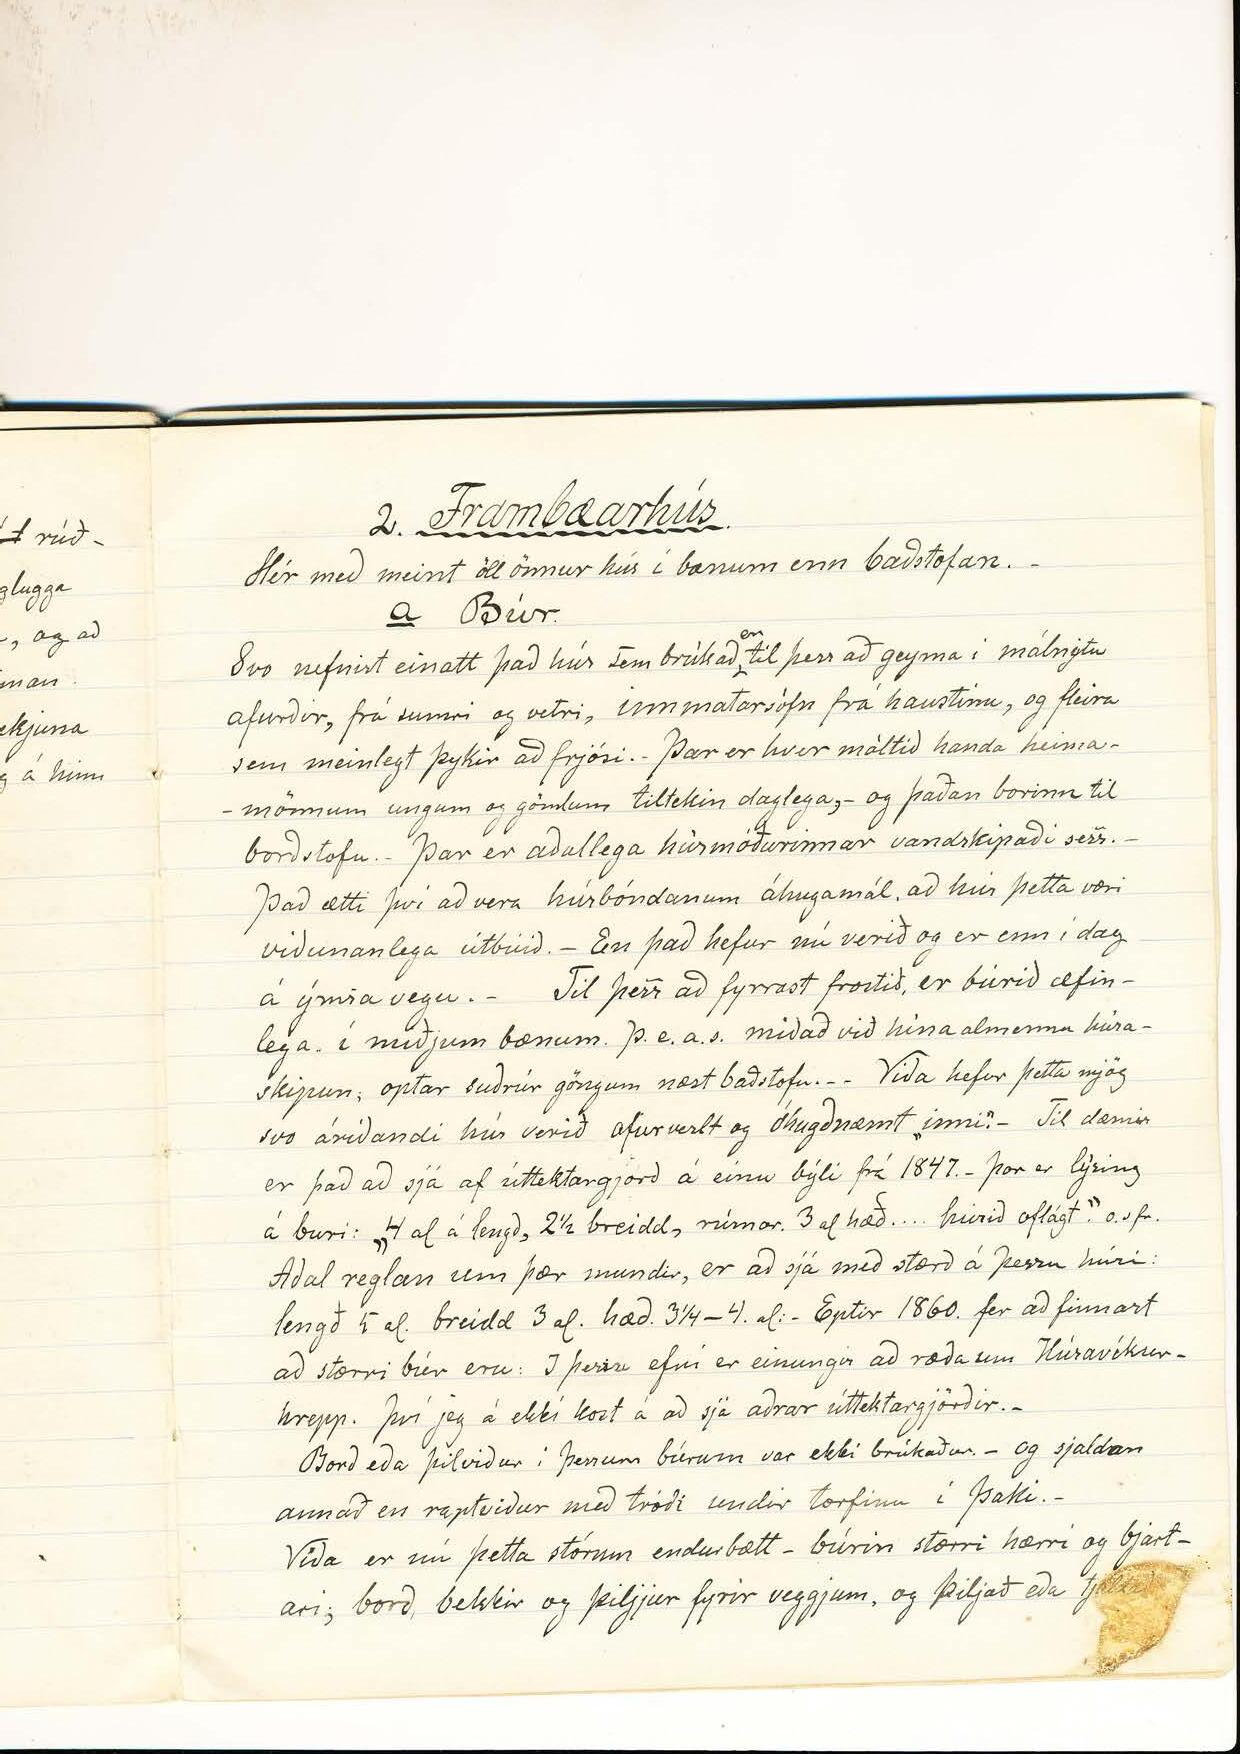 rúð-
glugga
, og að
man.
ekjuna
g á hinn
2. Frambæarhús.
Hér með meint öll önnur hús í bænum enn baðstofan. -
a Búr.
Svo nefnist einatt það hús sem brúkað er til þess að geyma í málnytu
afurðir, frá sumri og vetri, innmatarsöfn frá haustinu, og fleira
sem meinlegt þykir að frjósi. - Þar er hver máltíð handa heima-
- mönnum ungum og gömlum tiltekin daglega, - og þaðan borinn til
borðstofu. - Þar er aðallega húsmóðurinnar vandskipaði sess. -
Það ætti því að vera húsbóndanum áhugamál, að hús þetta væri
viðunanlega útbúið. - En það hefur nú verið og er enn í dag
á ýmsa vegu. - Til þess að fyrrast frostið, er búrið æfin-
lega í miðjum bænum. Þ. e. a. s. miðað við hina almennu húsa-
skipun; optar suðrúr göngum næst baðstofu. - - Víða hefur þetta mjög
svo áríðandi hús verið afurverlt og óhugðnæmt „inni". - Til dæmis
er það að sjá af úttektargjörð á einu býli frá 1847. - Þar er lýsing
á buri: „4 al á lengd, 2½ breidd, rúmar 3 al hæð.... húsið oflágt". o.s.fr.
Aðal reglan um þær mundir, er að sjá með stærð á þessu húsi:
lengð 5 al. breidd 3 al. hæð. 3¼ - 4. al: - Eptir 1860. fer að finnast
að stærri búr eru: I þessu efni er einungis að ræða um Húsavíkur-
hrepp. Því jeg á ekki kost á að sjá aðrar úttektargjörðir. -
Borð eða þilviður í þessum búrum var ekki brúkaður. - og sjaldan
annað en raptviður með tróði undir torfinu í þaki. -
Víða er nú þetta stórum endurbætt - búrin stærri hærri og bjart-
ari; borð, bekkir og þiljjur fyrir veggjum, og þiljað eða